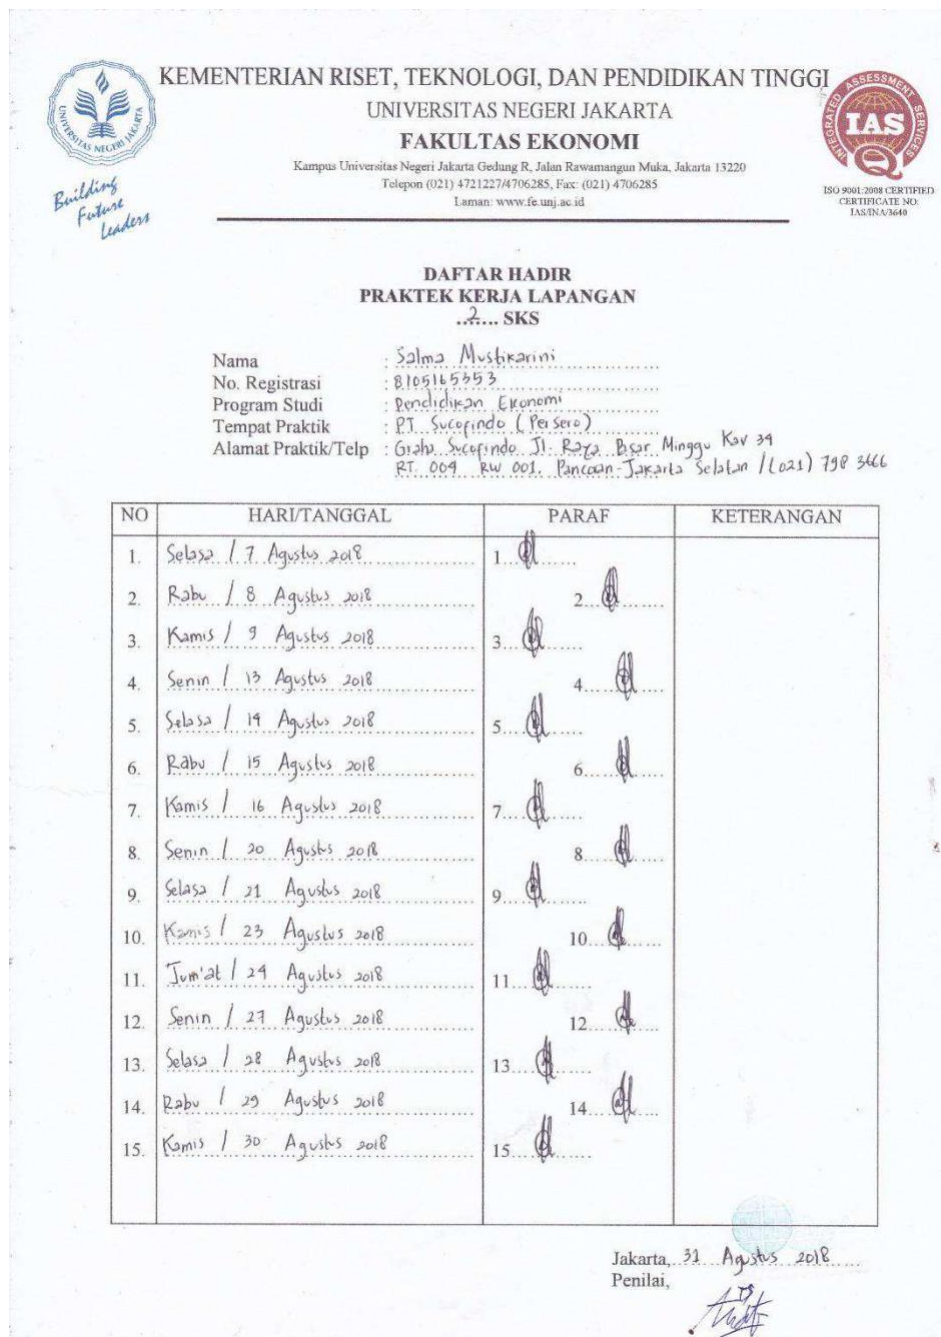 KEMENTERIAN RISET, TEKNOLOGI, DAN PENDIDIKAN TINGGI
UNIVERSITAS NEGERI JAKARTA
FAKULTAS EKONOMI
Kampus Universitas Negeri Jakarta Gedung R, Jalan Rawamangun Muka, Jakarta 13220
Telepon (021) 4721227/4706285, Fax: (021) 4706285
Laman: www.fe.unj.ac.id
UNIVERSITAS NEGERI JAKARTA
Building
Future
Leaders
INTEGRATED ASSESSMENT SERVICES
IAS
ISO 9001:2008 CERTIFIED
CERTIFICATE NO:
IAS/INA/3640
DAFTAR HADIR
PRAKTEK KERJA LAPANGAN
..2.... SKS
Nama : Salma Mustikarini
No. Registrasi : 8105165353
Program Studi : Pendidikan Ekonomi
Tempat Praktik : PT. Sucofindo (Persero)
Alamat Praktik/Telp : Graha Sucofindo Jl. Raya Psar Minggu Kav 34
RT. 004 RW 001. Pancoan - Jakarta Selatan / (021) 798 3666
NO HARI/TANGGAL PARAF KETERANGAN
1. Selasa / 7 Agustus 2018 1.
2. Rabu / 8 Agustus 2018 2.
3. Kamis / 9 Agustus 2018 3.
4. Senin / 13 Agustus 2018 4.
5. Selasa / 14 Agustus 2018 5.
6. Rabu / 15 Agustus 2018 6.
7. Kamis / 16 Agustus 2018 7.
8. Senin / 20 Agustus 2018 8.
9. Selasa / 21 Agustus 2018 9.
10. Kamis / 23 Agustus 2018 10.
11. Jum'at / 24 Agustus 2018 11.
12. Senin / 27 Agustus 2018 12.
13. Selasa / 28 Agustus 2018 13.
14. Rabu / 29 Agustus 2018 14.
15. Kamis / 30 Agustus 2018 15.
Jakarta, 31 Agustus 2018
Penilai,